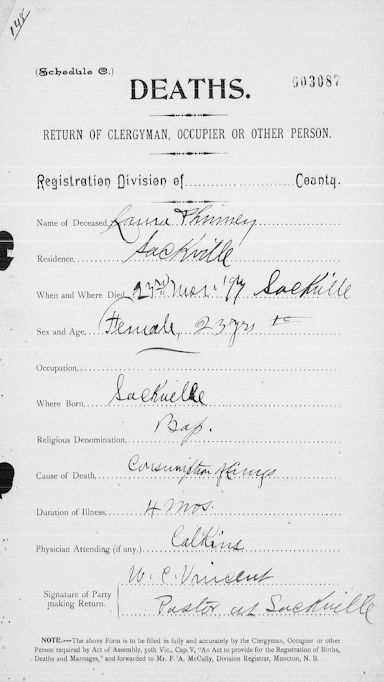 148
(Schedule C.)
003087
DEATHS.
RETURN OF CLERGYMAN, OCCUPIER OR OTHER PERSON.
Registration Division of County.
Name of Deceased, Laura Phinney
Residence, Sackville
When and Where Died, 23rd Mar. '97 Sackville
Sex and Age, Female, 23 yrs
Occupation,
Where Born, Sackville
Religious Denomination, Bap.
Cause of Death, Consumption of Lungs
Duration of Illness, 4 mos.
Physician Attending (if any,) Calkins
W. C. Vincent
Signature of Party making Return. Pastor at Sackville
NOTE.—The above Form is to be filled in fully and accurately by the Clergyman, Occupier or other
Person required by Act of Assembly, 50th Vic., Cap. V, "An Act to provide for the Registration of Births,
Deaths and Marriages," and forwarded to Mr. F. A. McCully, Division Registrar, Moncton, N. B.